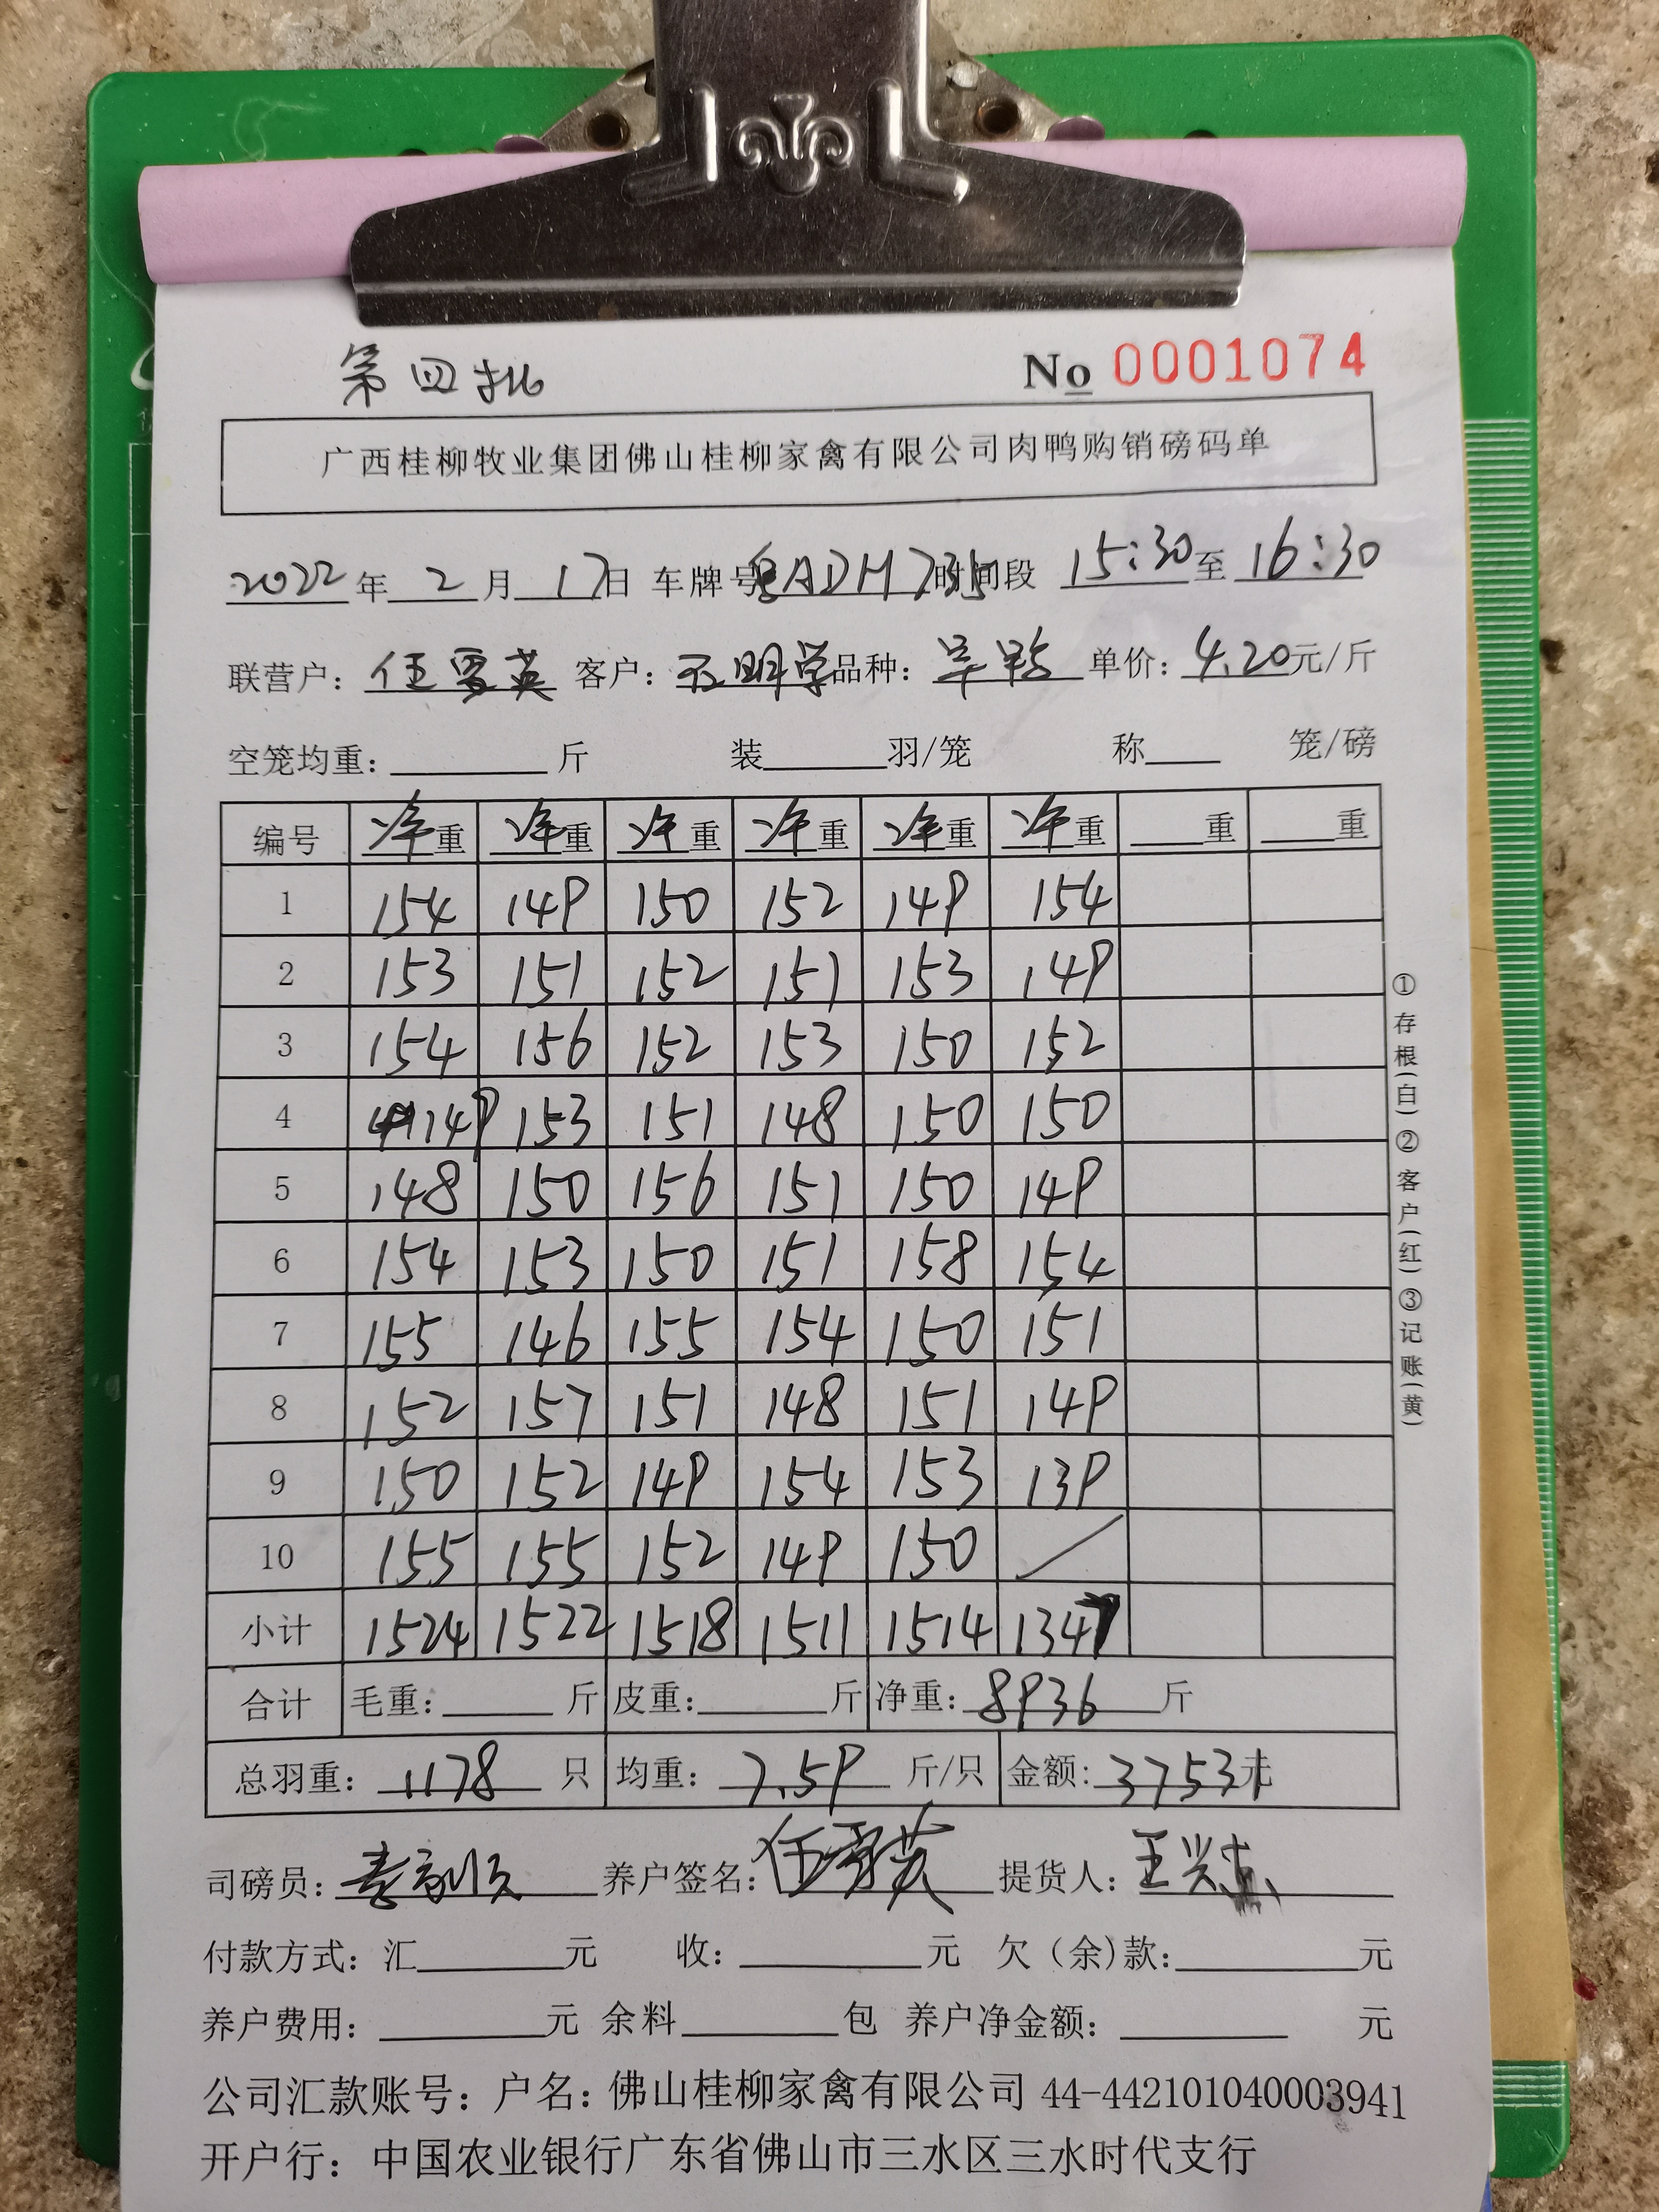 第四批 No 0001074
广西桂柳牧业集团佛山桂柳家禽有限公司肉鸭购销磅码单
2022年 2 月 17日 车牌号 粤ADM735 时间段 15:30 至 16:30
联营户: 任雪英 客户: 王明学 品种: 单价: 4.20元/斤
空笼均重: 斤 装 羽/笼 称 笼/磅
编号 净重 净重 净重 净重 净重 净重 重 重
1 154 149 150 152 149 154
2 153 151 152 151 153 149
3 154 156 152 153 150 152
4 149 153 151 148 150 150
5 148 150 156 151 150 149
6 154 153 150 151 158 154
7 155 146 155 154 150 151
8 152 157 151 148 151 149
9 150 152 149 154 153 139
10 155 155 152 149 150 /
小计 1524 1522 1518 1511 1514 1347
合计 毛重: 斤 皮重: 斤 净重: 8936 斤
总羽重: 1178 只 均重: 7.59 斤/只 金额: 37531元
司磅员: 养户签名: 任雪英 提货人:
付款方式: 汇 元 收: 元 欠(余)款: 元
养户费用: 元 余料 包 养户净金额: 元
公司汇款账号: 户名: 佛山桂柳家禽有限公司 44-442101040003941
开户行: 中国农业银行广东省佛山市三水区三水时代支行
①存根(白)②客户(红)③记账(黄)